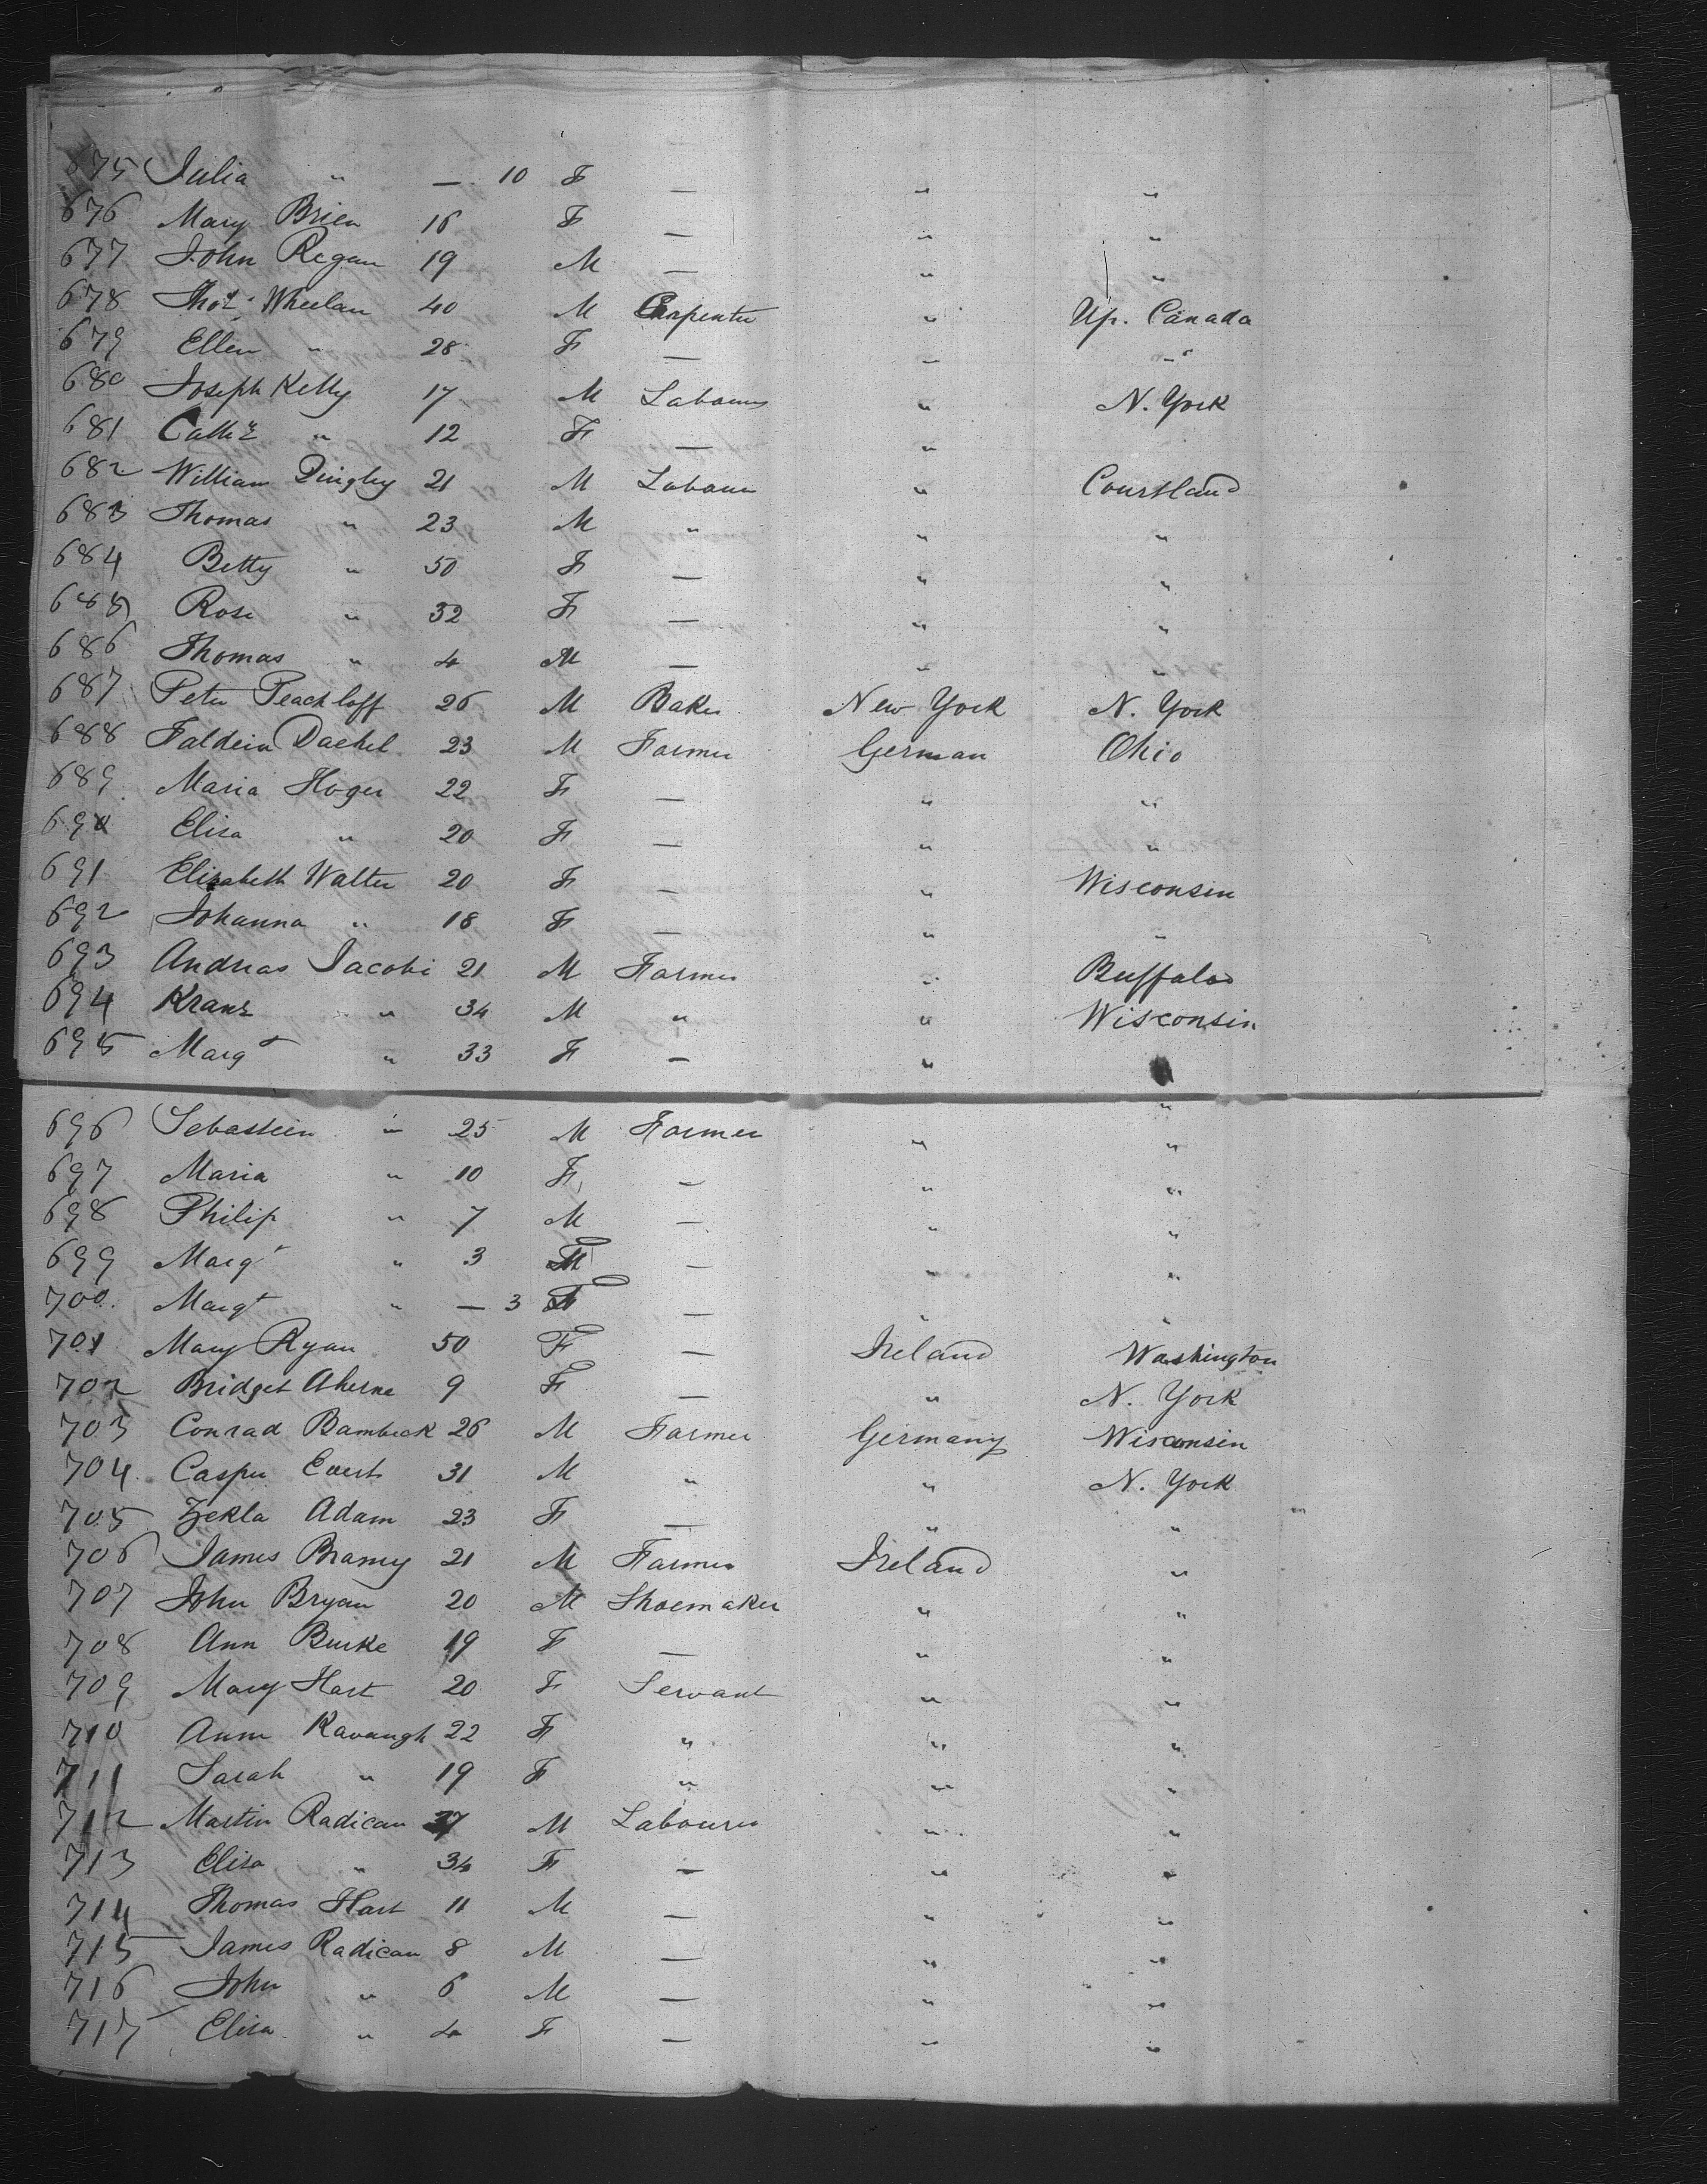 675 Julia " — 10 F — " "
676 Mary Brien 16 F — " "
677 John Regan 19 M — " "
678 Thos. Wheelan 40 M Carpenter " Up. Canada
679 Ellen " 28 F — " "
680 Joseph Kelly 17 M Labourer " N. York
681 Cathe " 12 F — "
682 William Dingley 21 M Labour " Courtland
683 Thomas " 23 M " " "
684 Betty " 50 F — " "
685 Rose " 32 F — " "
686 Thomas " 4 M — " "
687 Peter Peachloff 26 M Baker New York N. York
688 Faldein Dachel 23 M Farmer German Ohio
689 Maria Hoger 22 F — " "
690 Elisa " 20 F — " "
691 Elizabeth Walter 20 F — " Wisconsin
692 Johanna " 18 F — " "
693 Andreas Jacobi 21 M Farmer " Buffalo
694 Kranz " 34 M " " Wisconsin
695 Margt " 33 F — " "
696 Sebastien " 25 M Farmer " "
697 Maria " 10 F — " "
698 Philip " 7 M — " "
699 Margt " 3 F — " "
700 Margt " — 3 F — " "
701 Mary Ryan 50 F — Ireland Washington
702 Bridget Aherne 9 F — " N. York
703 Conrad Bambeck 26 M Farmer Germany Wisconsin
704 Casper Evert 31 M " " N. York
705 Zekla Adam 23 F — " "
706 James Bramy 21 M Farmer Ireland "
707 John Bryan 20 M Shoemaker " "
708 Ann Burke 19 F — " "
709 Mary Hart 20 F Servant " "
710 Ann Kavangh 22 F " " "
711 Sarah " 19 F " " "
712 Martin Radican 37 M Labourer " "
713 Elisa " 34 F — " "
714 Thomas Hart 11 M — " "
715 James Radican 8 M — " "
716 John " 6 M — " "
717 Elisa " 4 F — " "